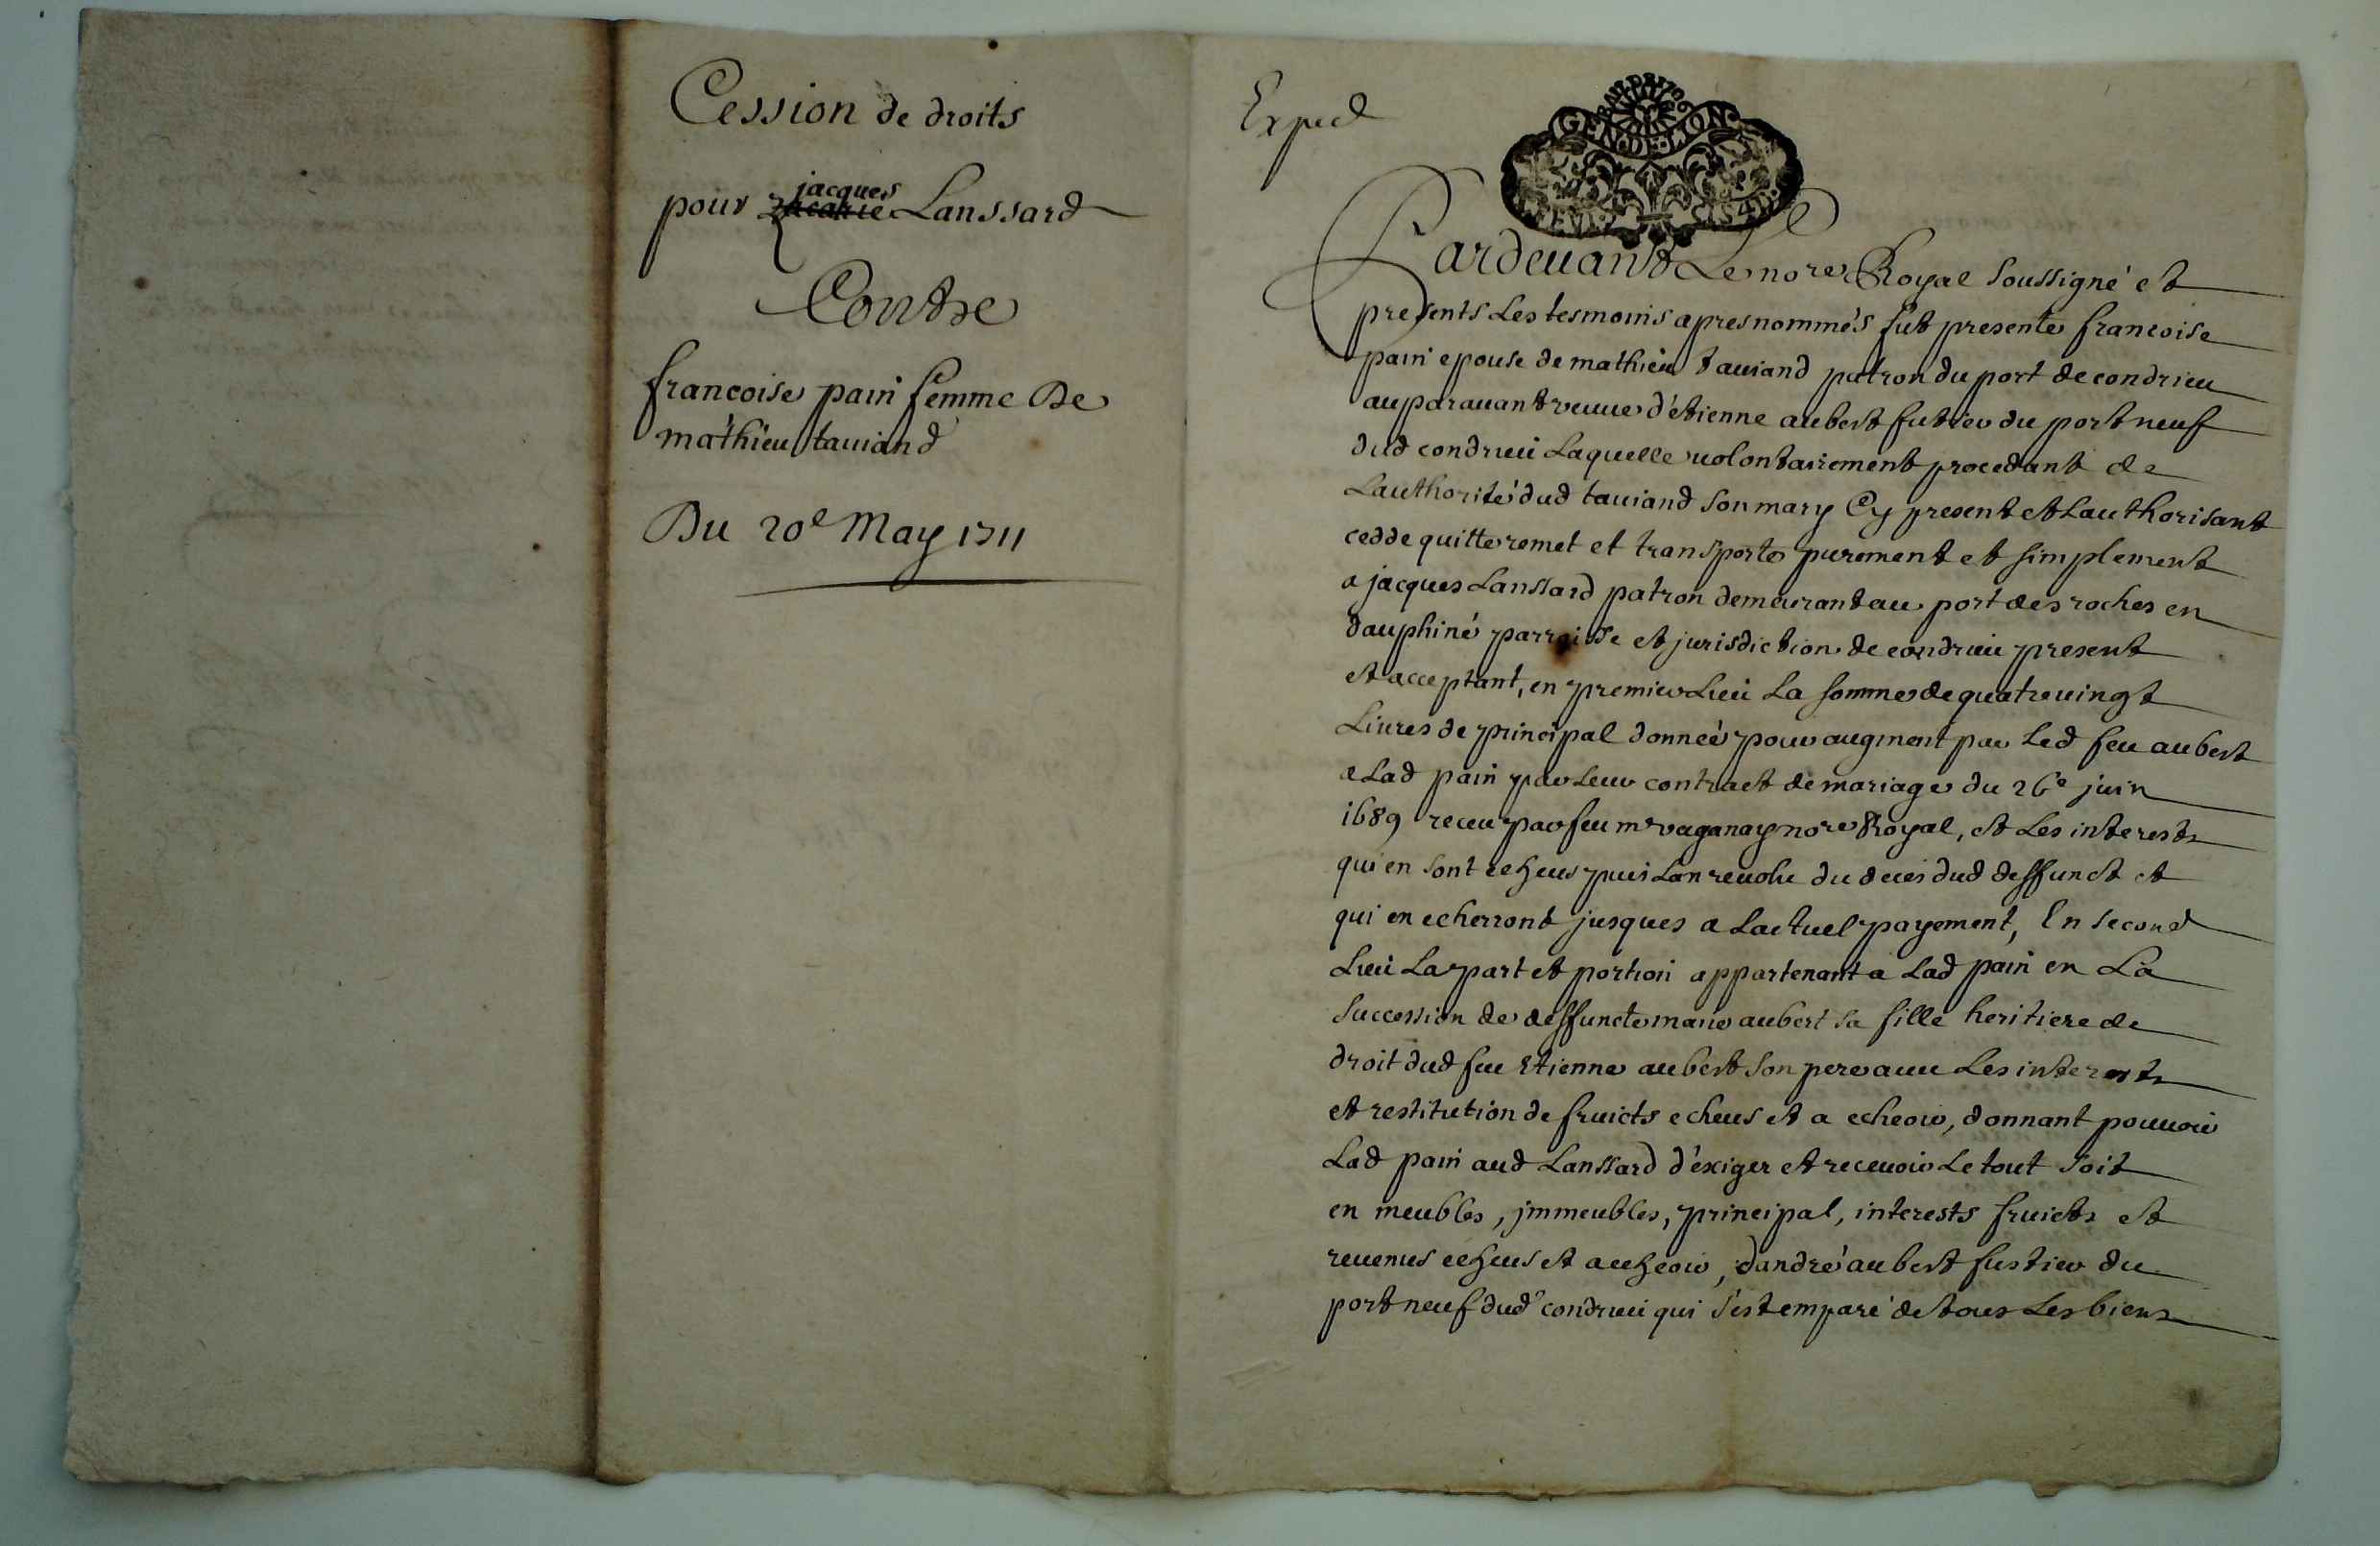 Cession de droits
jacques
pour zacarie Lanssard
Contre
francoise pain femme De
mathieu taviand
Du 20e May 1711
Exped
GEN DE LION
Pardevand Le nore Royal soussigné et
presents Les tesmoins apres nommés fut presente francoise
pain epouse de mathieu taviand patron du port de condrieu
auparavant veuve d'étienne aubert futier du port neuf
dud condrieu Laquelle volontairement procedant de
Lauthorité dud taviand son mary Cy present et Lauthorisant
cedde quitte remet et transporte purement et simplement
a jacques Lanssard patron demeurant au port des roches en
dauphiné parroisse et jurisdiction de condrieu present
et acceptant, en premier Lieu La somme de quatre vingt
Livres de principal donneé pour augment par Led feu aubert
a Lad pain par Leur contract de mariage du 26e juin
1689 receu par feu mr vaganay nore Royal, et Les interests
qui en sont echeus puis Lan revolu du deces dud deffunct et
qui en echerront jusques a Lactuel payement, En second
Lieu La part et portion appartenant a Lad pain en La
succession de deffuncte marie aubert sa fille heritiere de
droit dud feu Etienne aubert son pere avec Les interests
et restitution de fruicts echeus et a echeoir, donnant pouvoir
Lad pain aud Lanssard d'exiger et recevoir Le tout soit
en meubles, jmmeubles, principal, interests fruicts et
revenus echeus et a echeoir, d'andré aubert fustier du
port neuf dud condrieu qui s'est emparé de tous Les biens